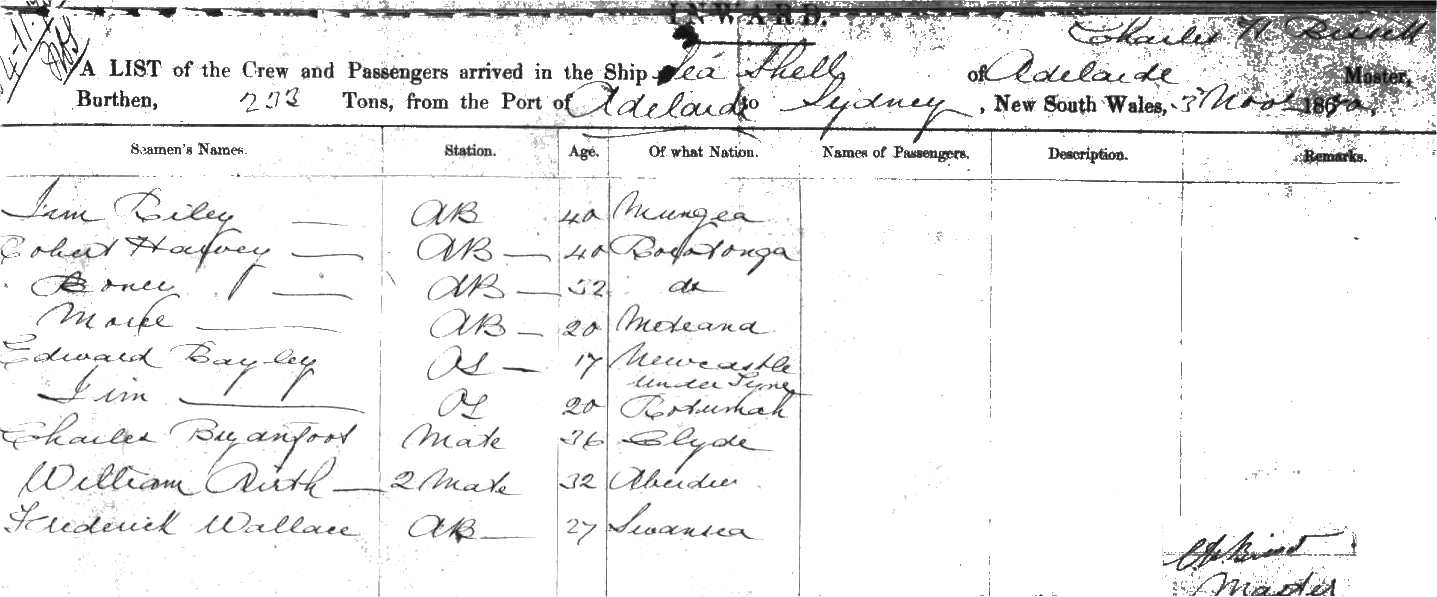 INWARD.
Charles
A LIST of the Crew and Passengers arrived in the Ship Sea Shell of Adelaide Master,
Burthen, 273 Tons, from the Port of Adelaide to Sydney, New South Wales, 3 Nov 18
Seamen's Names. Station. Age. Of what Nation. Names of Passengers. Description. Remarks.
Riley AB 40
Robert Harvey AB 40 Rorotonga
AB 32 do
AB 20
Edward Bayley OS 17 Newcastle
under Lyme
Jim OS 20 Rotumah
Charles Mate 36 Clyde
William 2 Mate 32 Aberdeen
Frederick Wallace AB 27 Swansea
Master